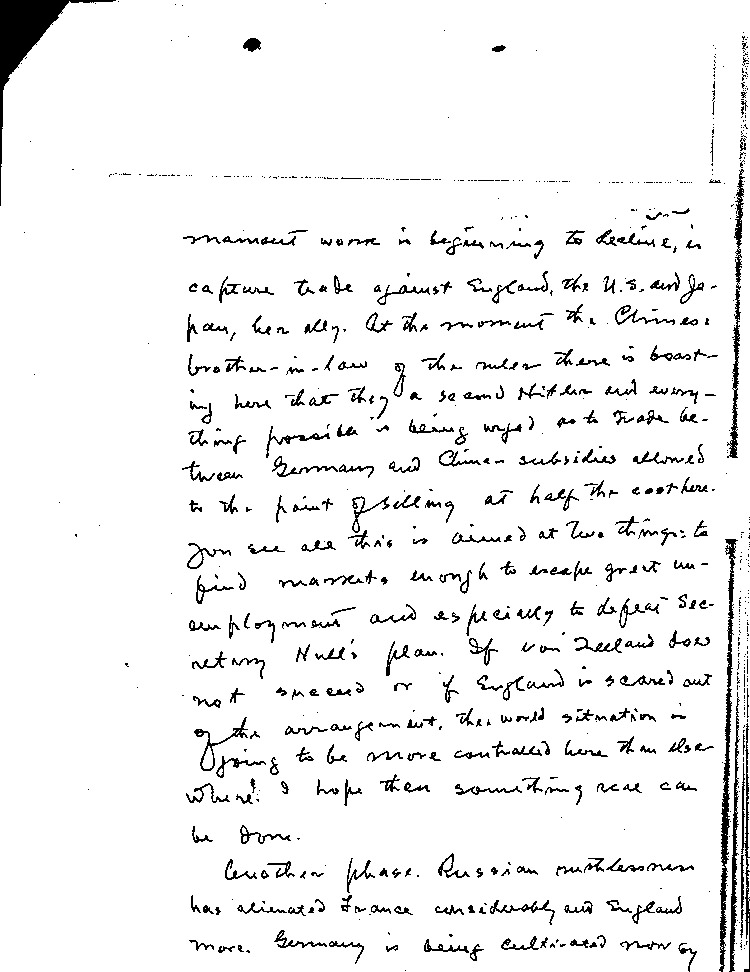 mament work is beginning to decline, is
capture trade against England, the U.S. and Ja-
pan, her ally. At the moment the Chinese
brother-in-law of the ruler there is boast-
ing here that they a second Hitler and every-
thing possible is being urged as to trade be-
tween Germany and China - subsidies allowed
to the point of selling at half the cost here.
You see all this is aimed at two things: to
find markets enough to escape great un-
employment and especially to defeat Sec-
retary Hull's plan. If von Zeeland does
not succeed or if England is scared out
of the arrangement, the world situation is
going to be more controlled here than else-
where. I hope then something real can
be done.
Another phase. Russian ruthlessness
has alienated France considerably and England
more. Germany is being cultivated now by